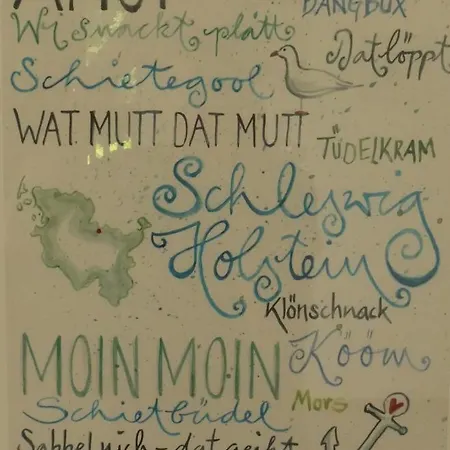 DANGBÜX
Wi snackt platt
Dat löppt
Schietegool
WAT MUTT DAT MUTT
TÜDELKRAM
Schleswig
Holstein
Klönschnack
MOIN MOIN
Kööm
Mors
Schietbüdel
Sabbel nich - dat geiht